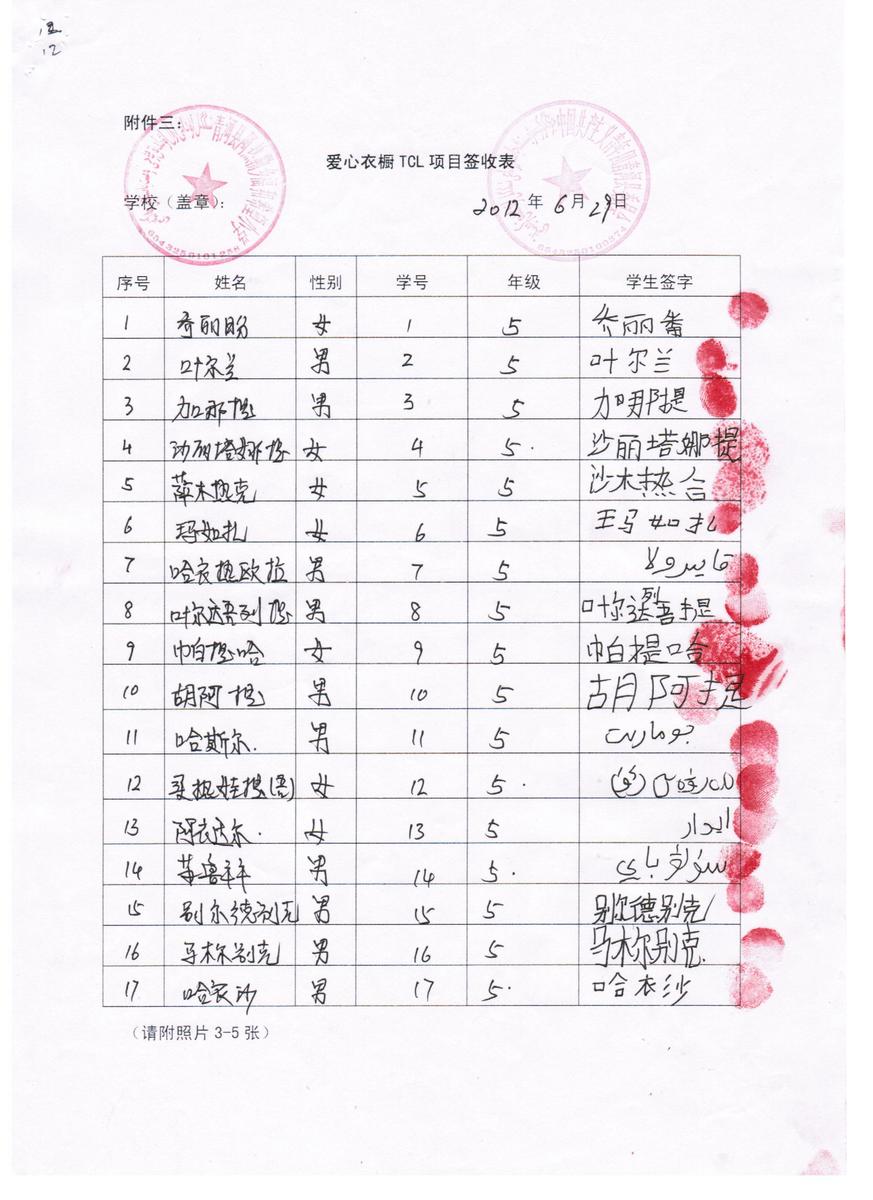 12
附件三:
爱心衣橱 TCL 项目签收表
学校（盖章）: 2012 年 6 月 29 日
序号 姓名 性别 学号 年级 学生签字
1 乔丽盼 女 1 5 乔丽番
2 叶尔兰 男 2 5 叶尔兰
3 加那提 男 3 5 加那提
4 沙丽塔娜提 女 4 5. 沙丽塔娜提
5 萨木热克 女 5 5 沙木热合
6 玛如扎 女 6 5 玛如扎
7 哈衣提欧拉 男 7 5
8 叶尔达吾列提 男 8 5
9 帕提哈 女 9 5 帕提哈
10 胡阿提 男 10 5 胡阿提
11 哈斯尔. 男 11 5
12 女 12 5.
13 阿衣达尔. 女 13 5 ايدار
14 男 14 5.
15 别尔德别克 男 15 5 别尔德别克
16 马木尔别克 男 16 5 马木尔别克.
17 哈衣沙 男 17 5. 哈衣沙
（请附照片 3-5 张）